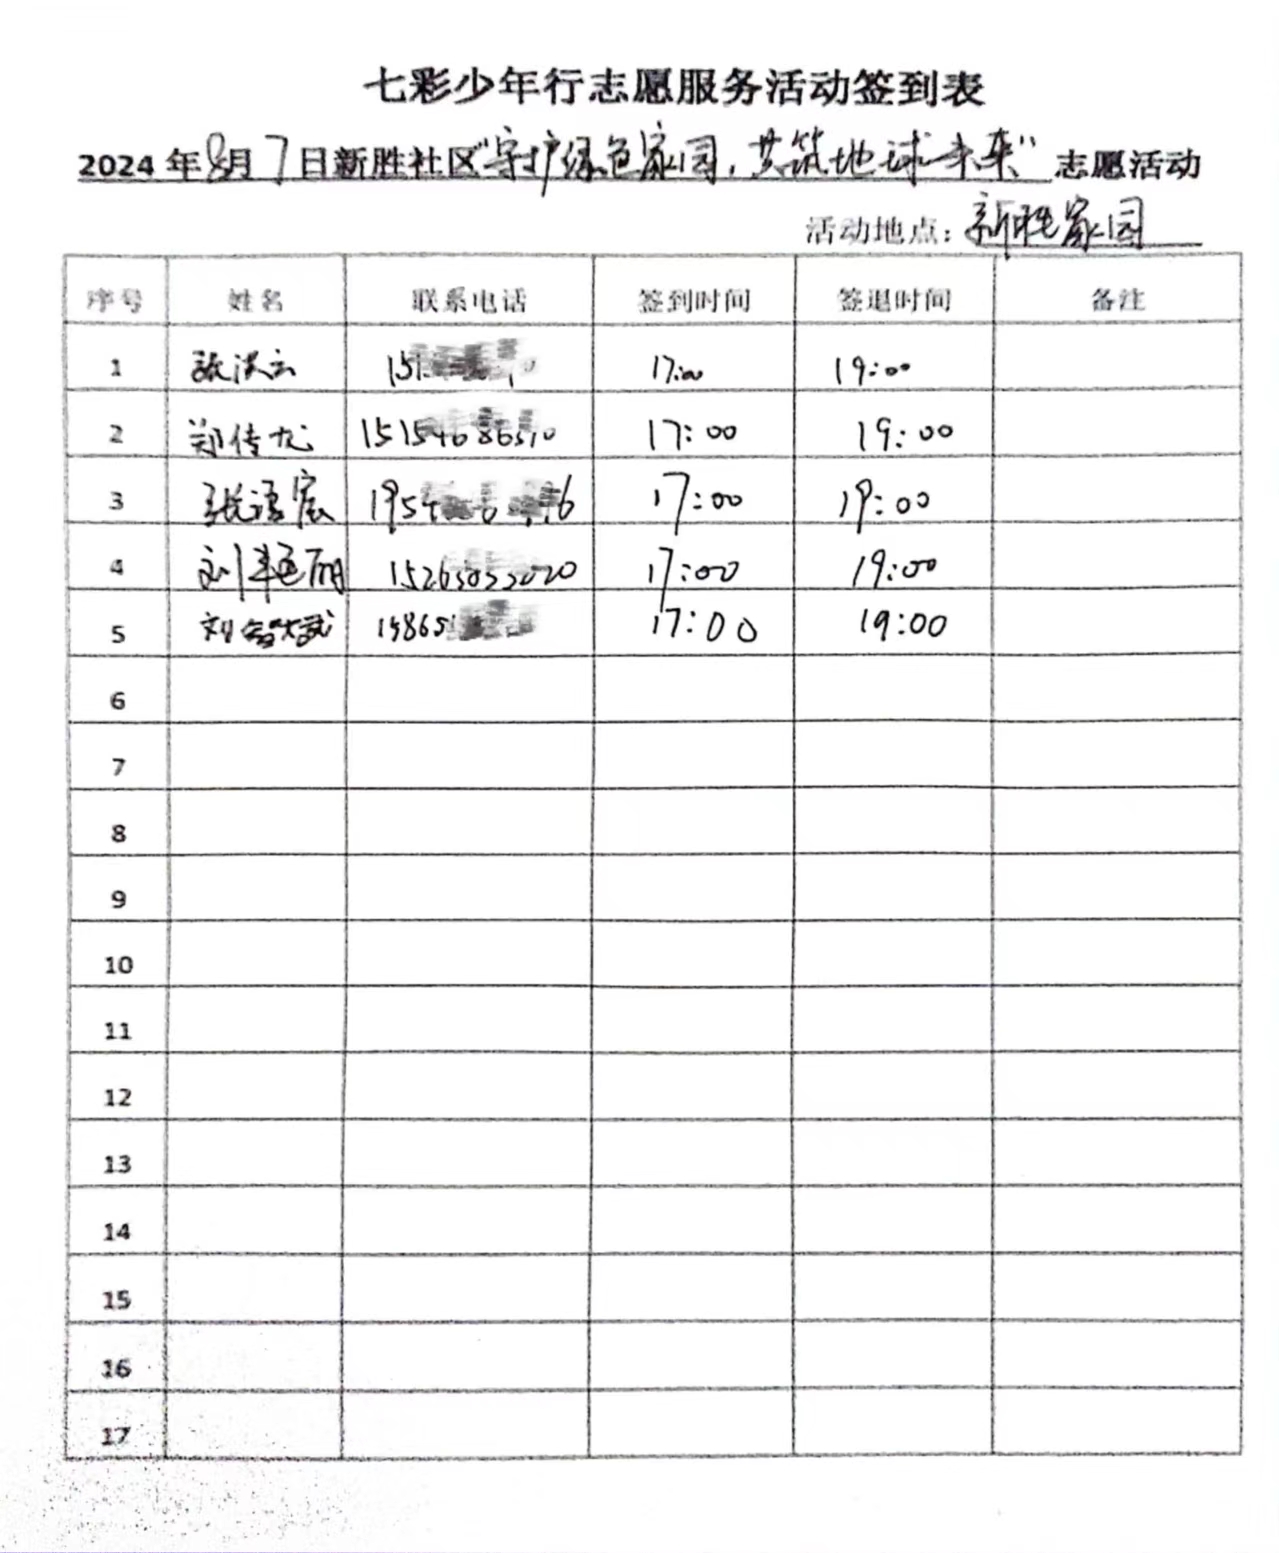 七彩少年行志愿服务活动签到表
2024年8月7日新胜社区"守护绿色家园，共筑地球未来"志愿活动
活动地点：新胜家园
序号 姓名 联系电话 签到时间 签退时间 备注
1 张洪云 17:00 19:00
2 郑传龙 17:00 19:00
3 张语宸 17:00 19:00
4 刘艳丽 17:00 19:00
5 刘 17:00 19:00
6
7
8
9
10
11
12
13
14
15
16
17